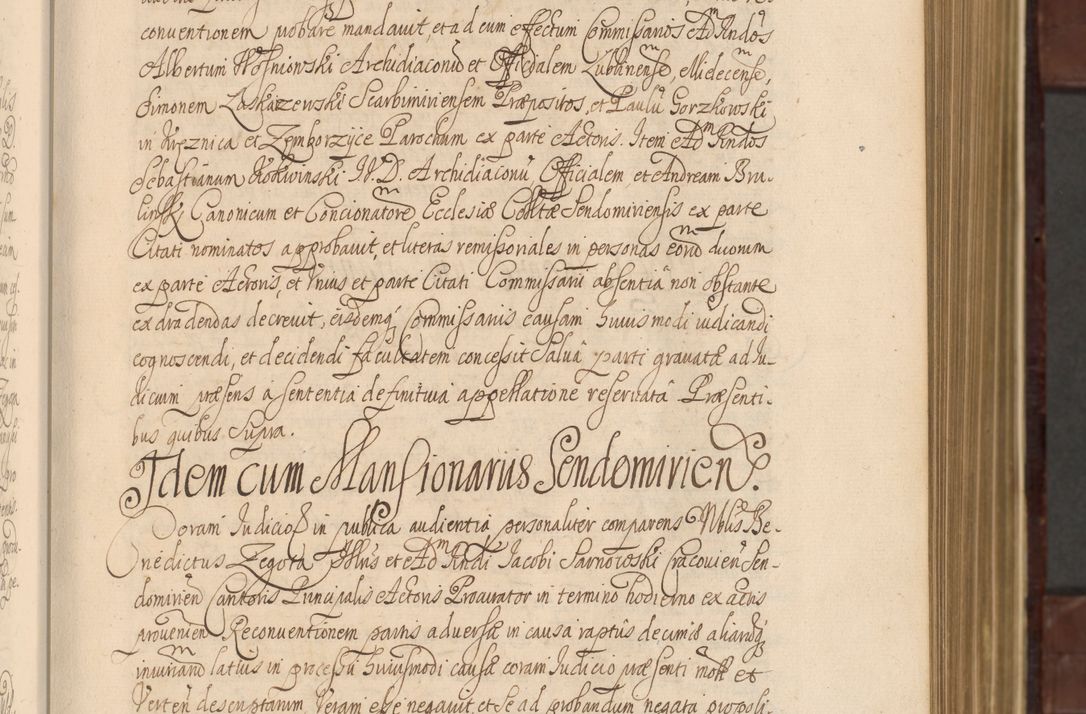 conventionem probare mandavit, et ad eum effectum Commissarios Adm Rndos
Albertum Wośniowski Archidiaconu et Officialem Lublinensem, Mielecensem,
Simonem Laskarzewski Scarbimiriensem Præpositos, et Paulu Gorzkowski
in Krẹznica et Zẹmborzyce Parochum ex parte Actoris. Item Adm Rndos
Sebastianum Kokwinski I.V.D. Archidiaconu Officialem et Andream Bru-
linsk Canonicum et Concionatore Ecclesiæ Colltæ Sendomiriensis ex parte
Citati nominatos approbavit, et literas remissoriales in personas eoru duorum
ex parte Actoris, et Unius et parte Citati Commissarii absentia non obstante
ex dra dendas decrevit, eisdemq Commissariis causam huiusmodi iudicandi
cognoscendi, et decidendi facultatem concessit Salva parti gravatæ ad Iu-
dicium præsens a sententia definitiva appellatione reservata Præsenti-
bus quibus supra.
Idem cum Mansionariis Sendomirien.
Coram Iudicio et in publica audientia personaliter comparens Nblis Be-
nedictus Zegota Pblris et Adm Rndi Iacobi Sarnowski Cracovien Sen-
domirien Cantoris Principalis Actoris Procurator in termino hodierno ex actis
provenien Reconventionem partis adversæ in causa raptus decimæ aliarumq
iniuriarum latius in processu huiusmodi causæ coram Iudicio præsenti mott et
Verten descriptarum Veram esse negavit et se ad probandum negata proposi-